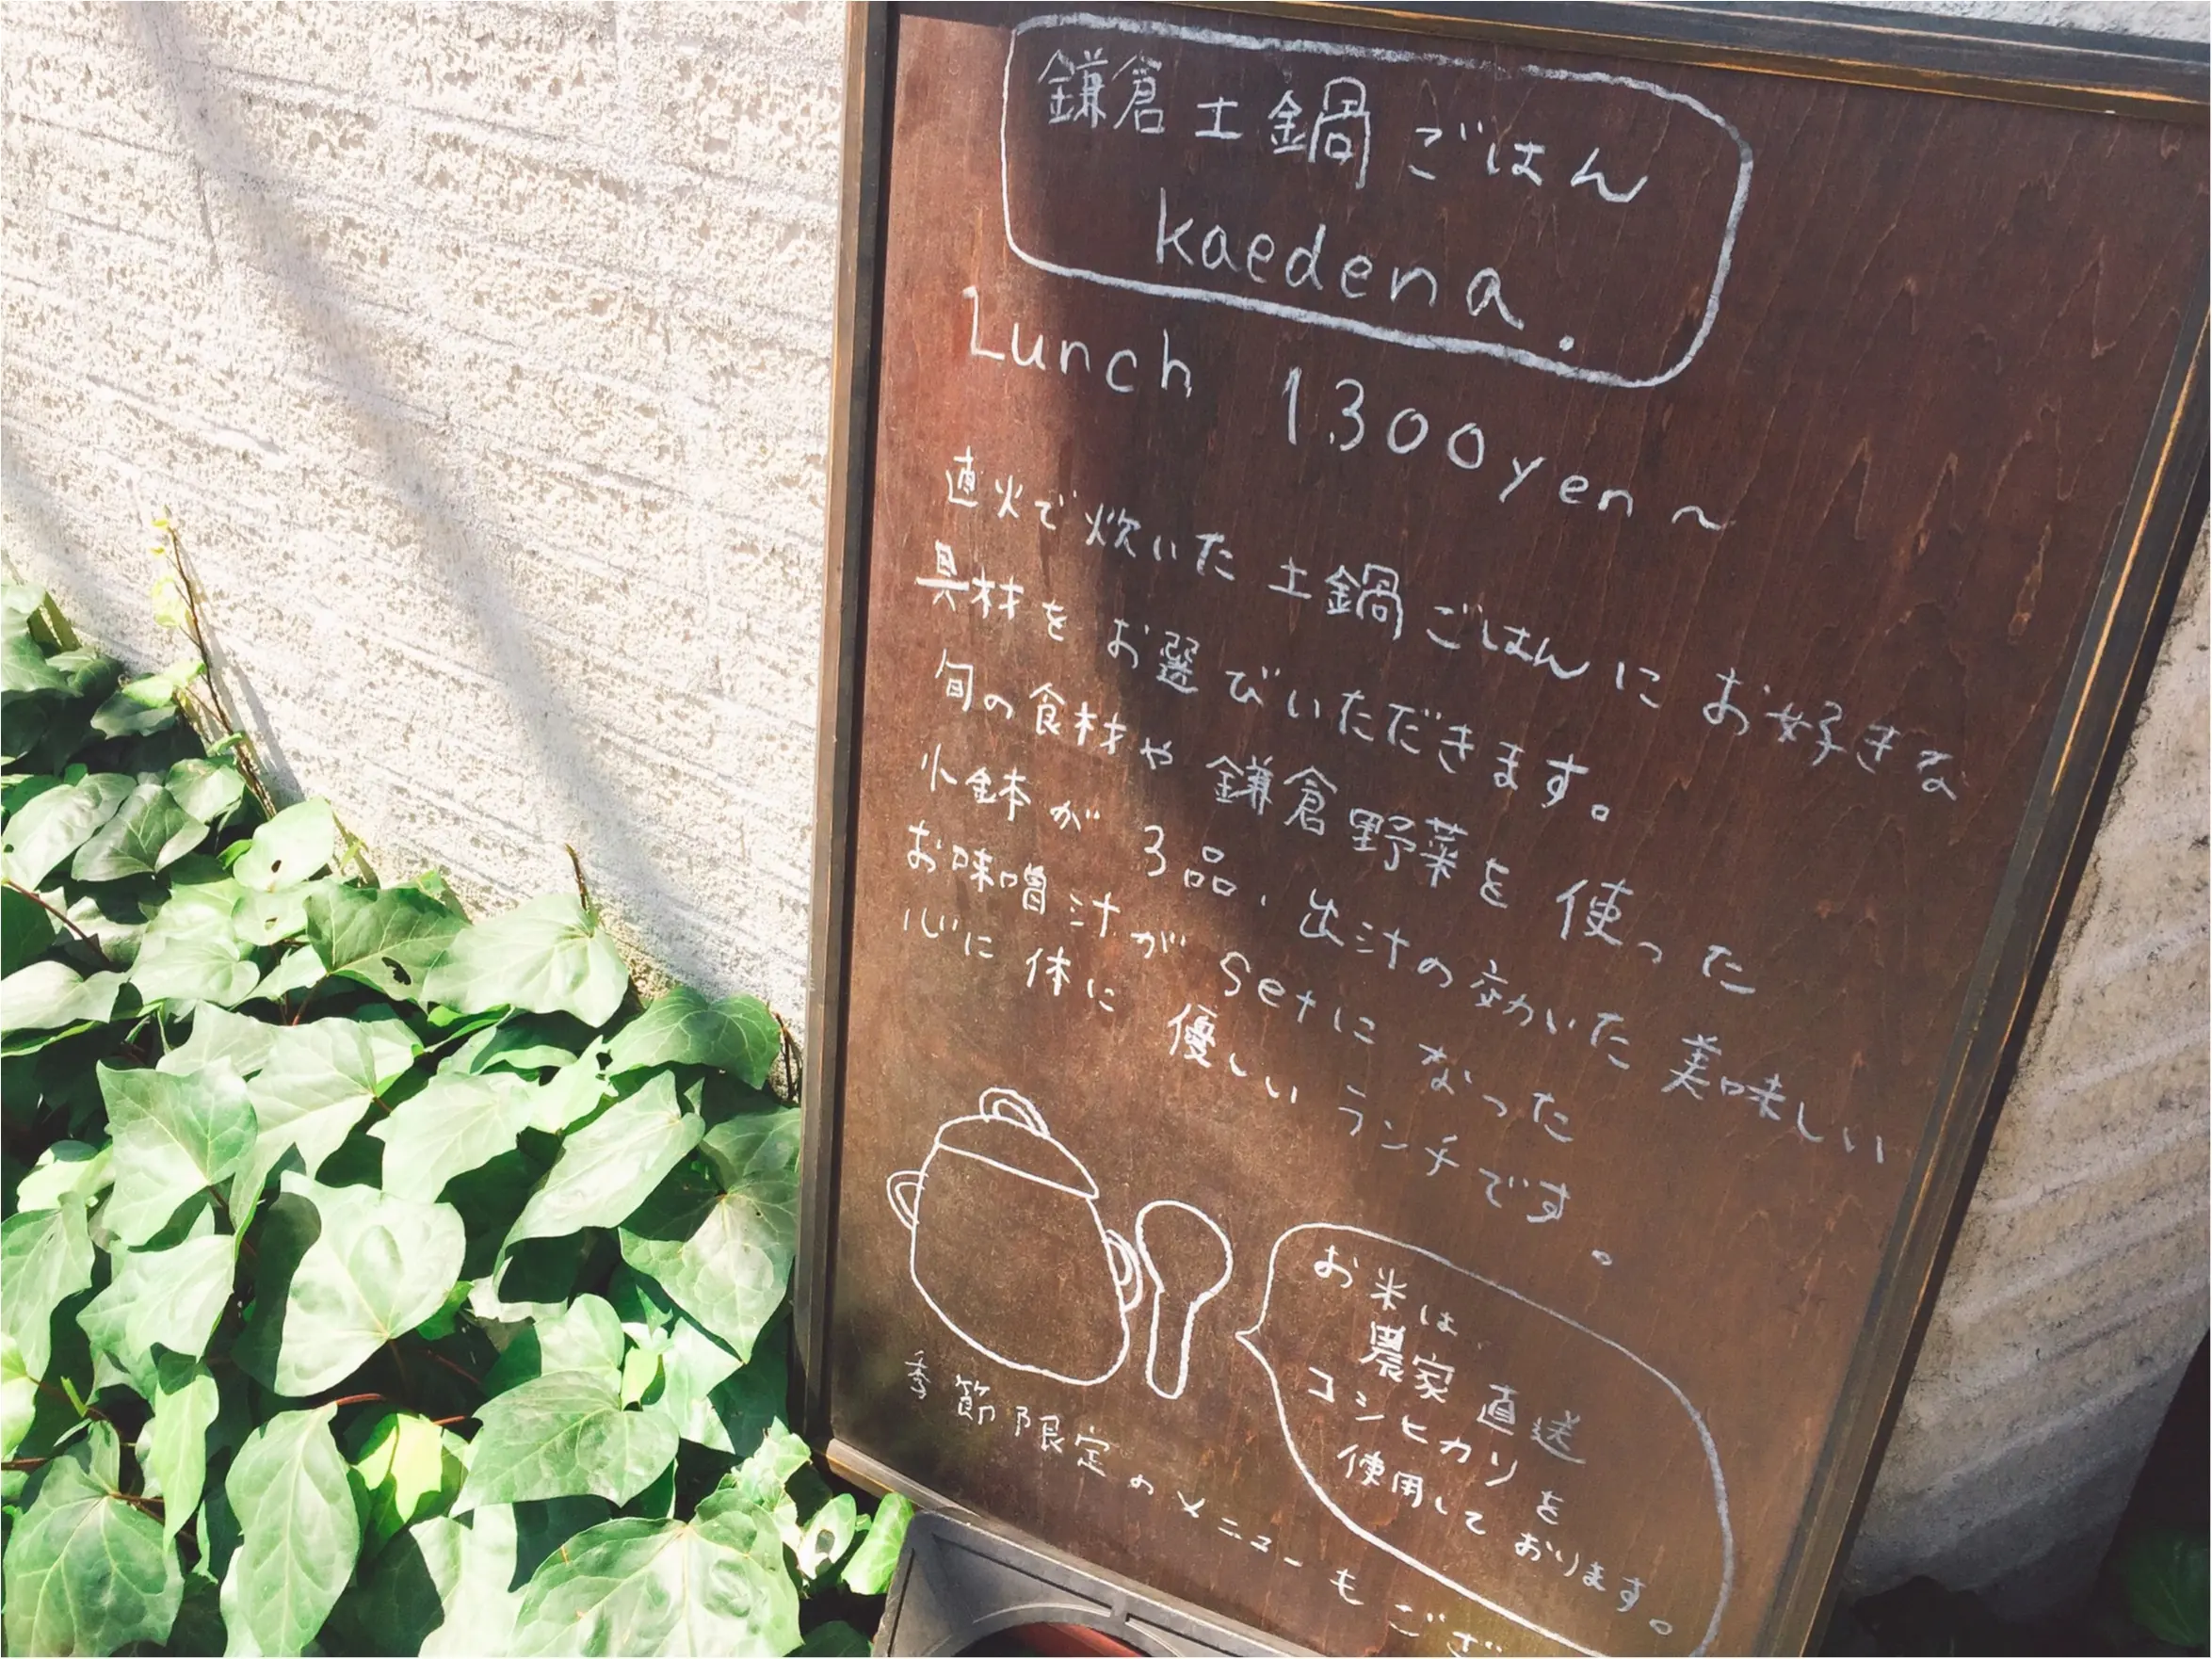 鎌倉土鍋ごはん
kaedena.
Lunch 1,300yen〜
直火で炊いた土鍋ごはんにお好きな
具材をお選びいただきます。
旬の食材や鎌倉野菜を使った
小鉢が3品、出汁の効いた美味しい
お味噌汁がsetになった
心に体に優しいランチです。
お米は
農家直送
コシヒカリを
使用しております。
季節限定のメニューもござ